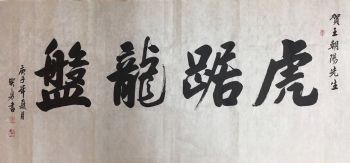 賀王朝陽先生
虎踞龍盤
庚子年夏月